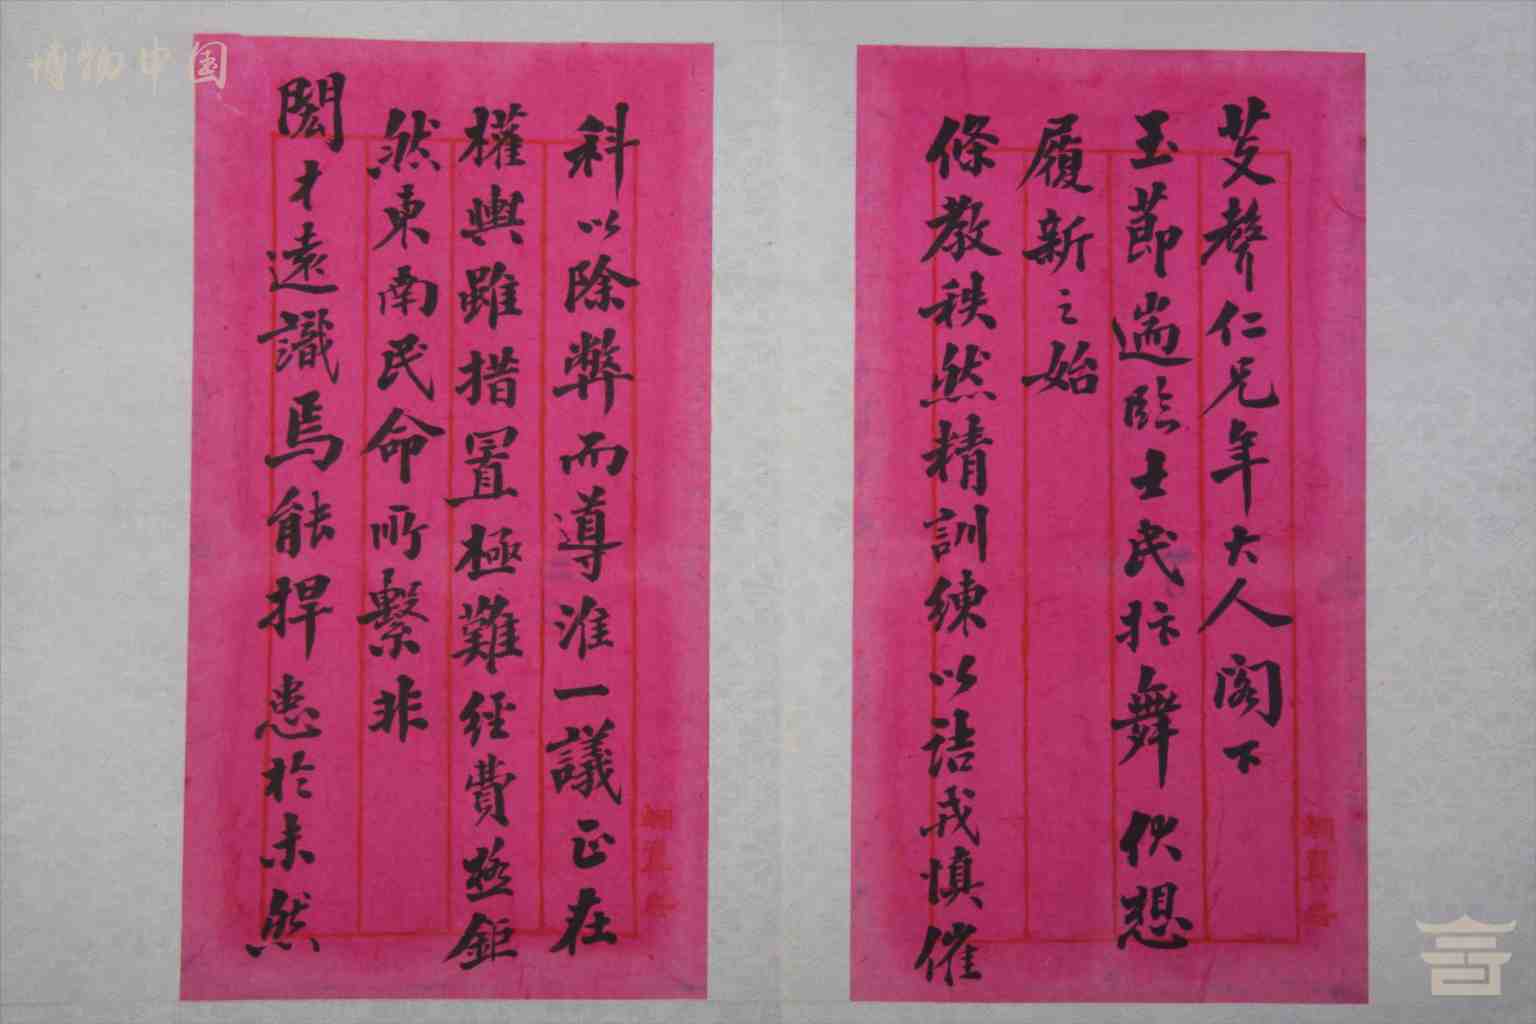 芰聲仁兄年大人閣下
玉莭遄臨士民抃舞伏想
履新之始
條教秩然精訓練以詰戎慎催
科以除弊而導淮一議正在
權輿雖措置極難經費甚鉅
然東南民命所繫非
閎才遠識焉能捍患於未然
博物中国